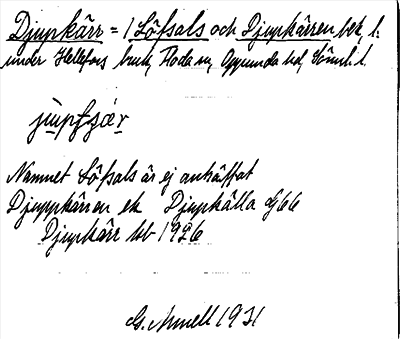 Djupkärr = / Löfsals och Djupkärren bek, l:
under Hellefors bruk, Floda sn, Oppunda hd, Söml. l.
Namnet Löfsals är ej anträffat
Djuppkärren ek Djupkälla G66
Djupkärr Ub 1926
G. Arnell 1931